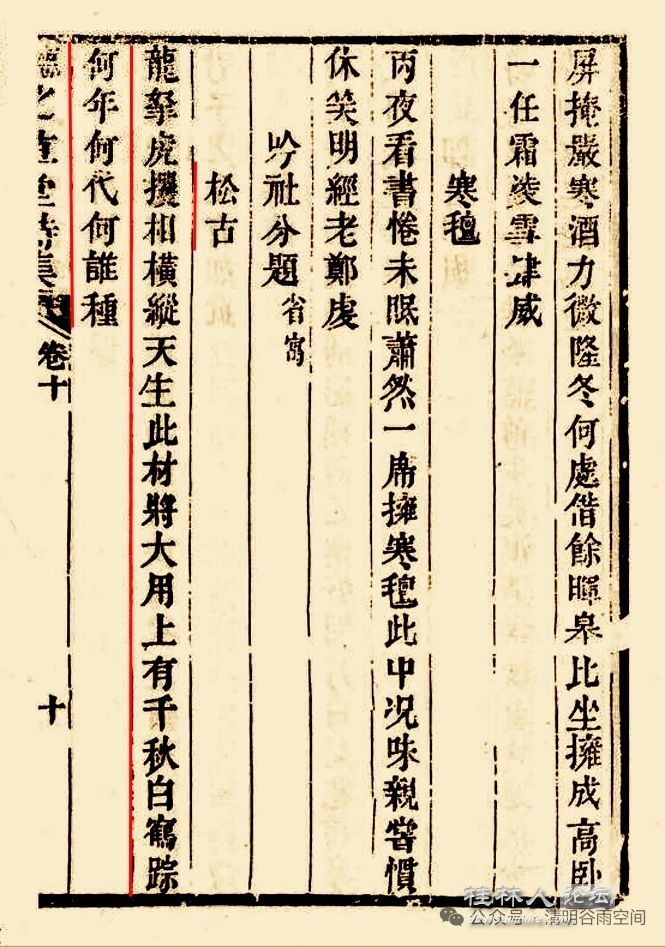 屏掩嚴寒酒力微隆冬何處借餘暉皋比坐擁成高卧
一任霜凌雪津威
寒氊
丙夜看書惓未眠蕭然一席擁寒氊此中況味親嘗慣
休笑明經老鄭虔
吟社分題省寓
松古
龍拏虎攫相橫縱天生此材將大用上有千秋白鶴踪
何年何代何誰種
之堂詩集
卷十
十
桂林人论坛
公众号 清明谷雨空间